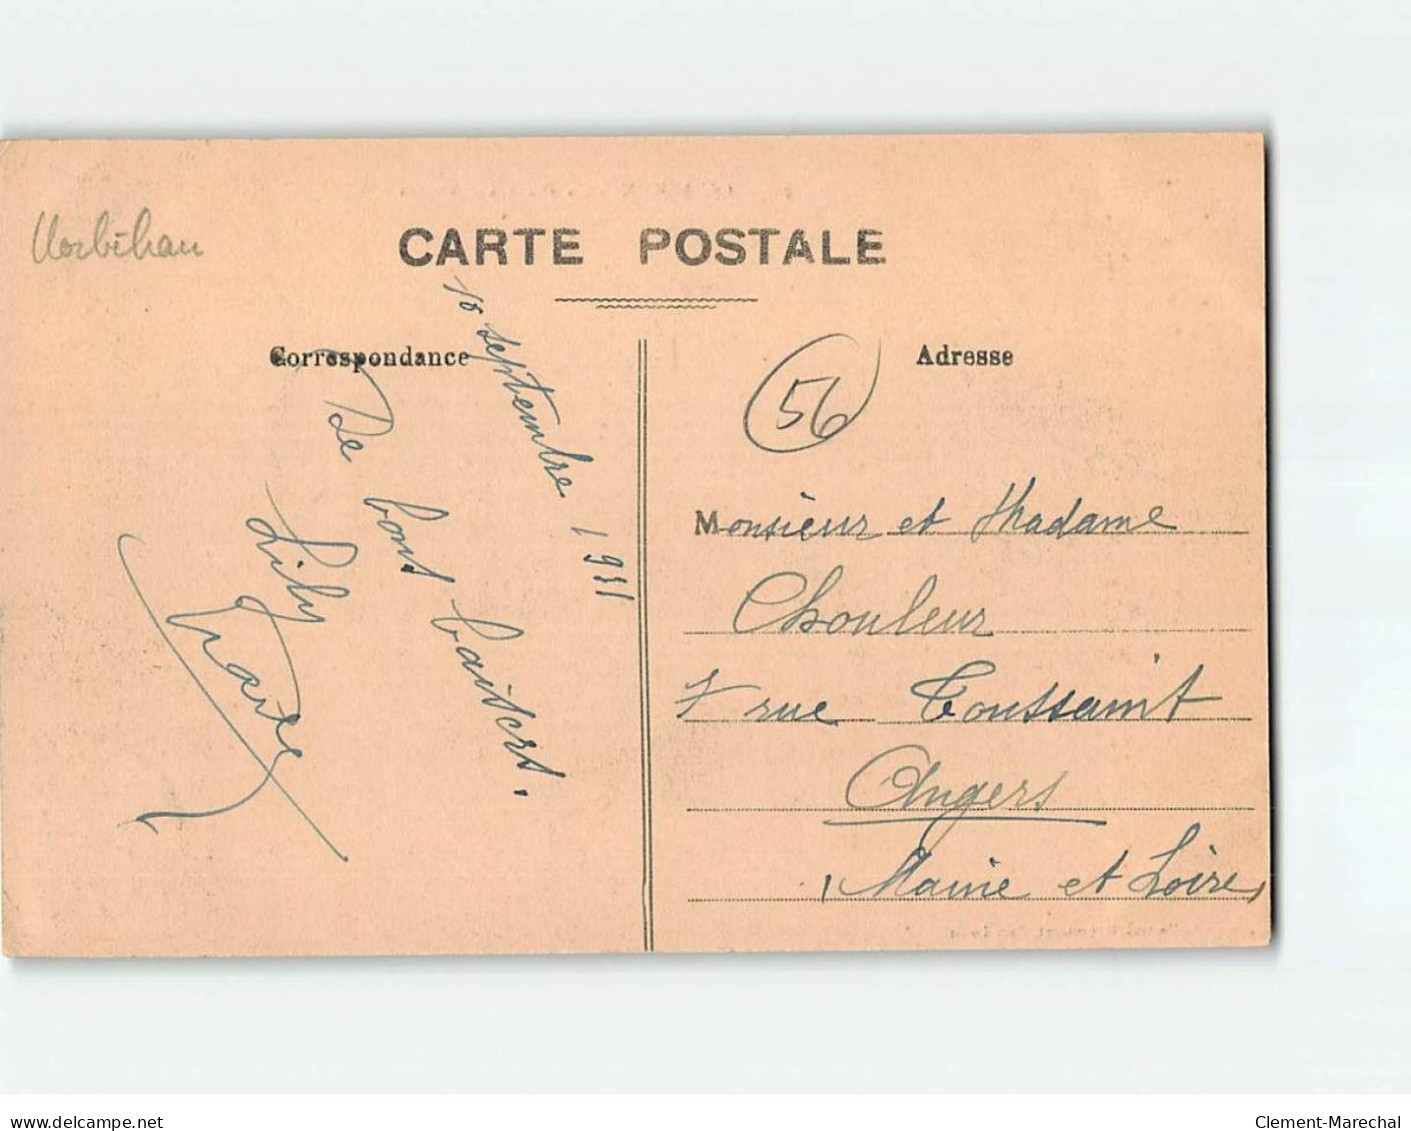 Morbihan
CARTE POSTALE
Correspondance
Adresse
56
10 septembre 1911
De bons baisers.
Lily
Monsieur et Madame
Chouleur
7 rue Toussaint
Angers
Maine et Loire
delcampe.net
Clement-Marechal